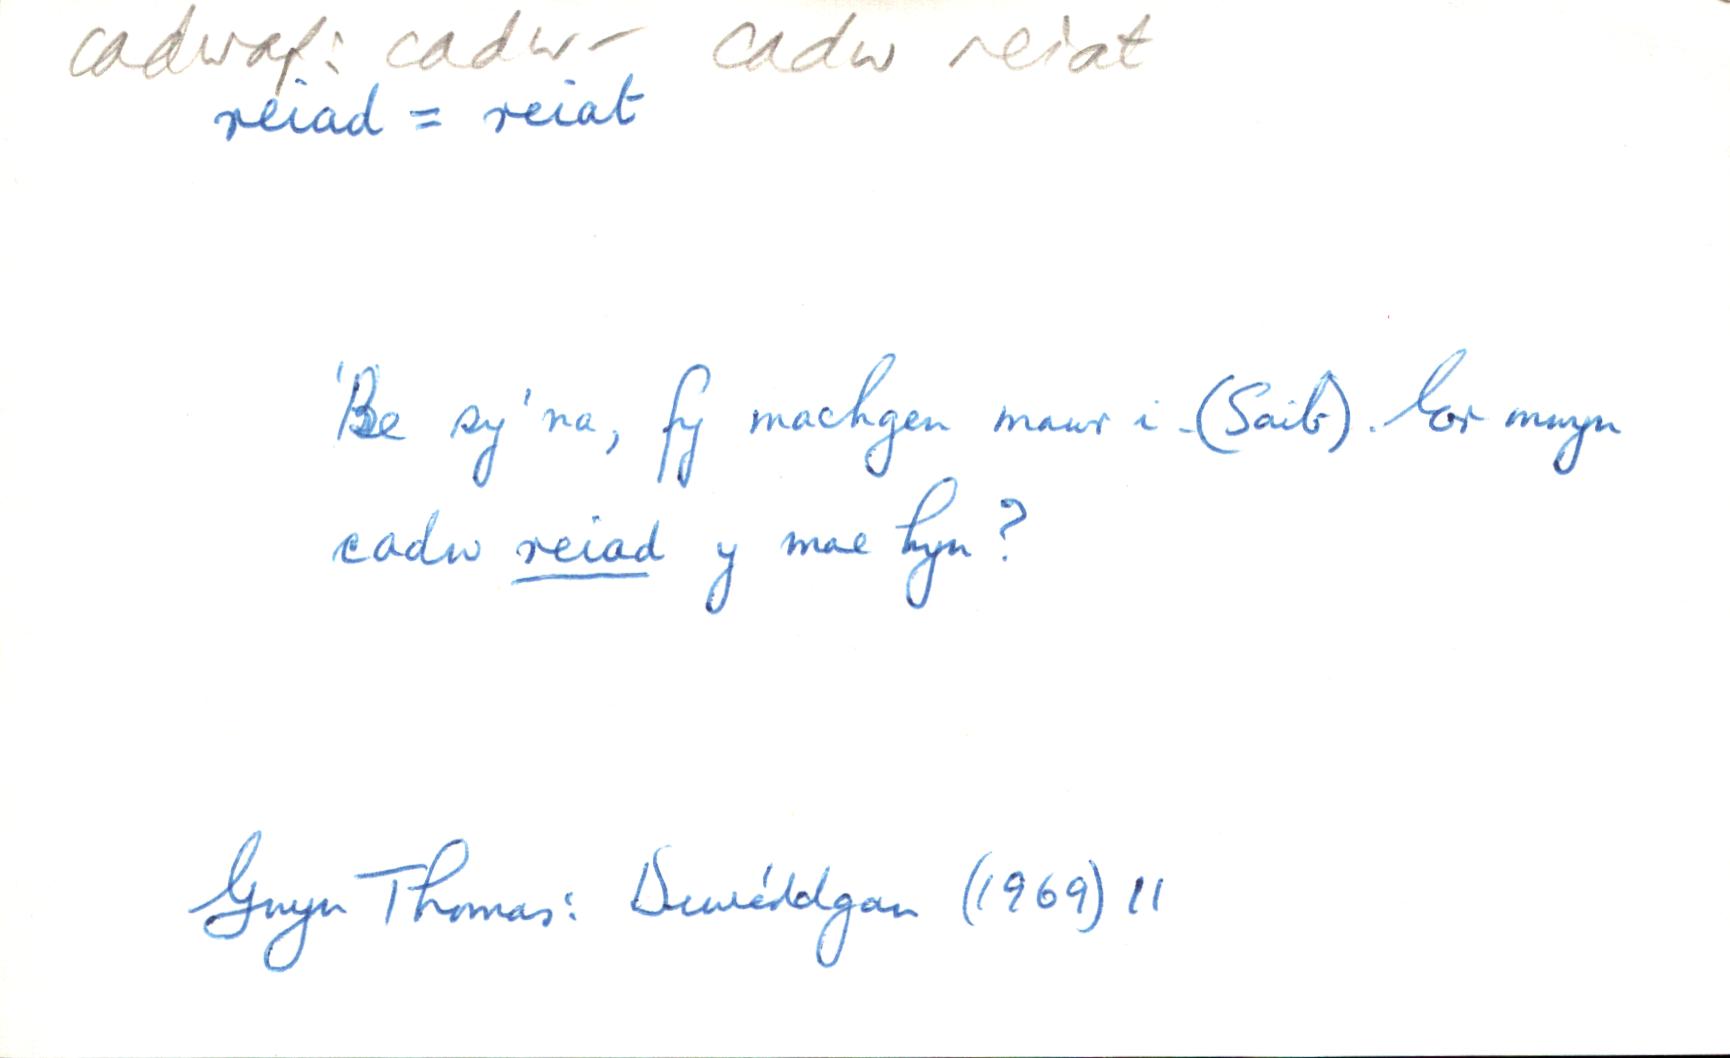 cadwaf: cadw- cadw reiat
reiad = reiat
'Be sy' na, fy machgen mawr i - (Saib). Er mwyn
cadw reiad y mae hyn?
Gwyn Thomas: Diweddgan (1969) 11